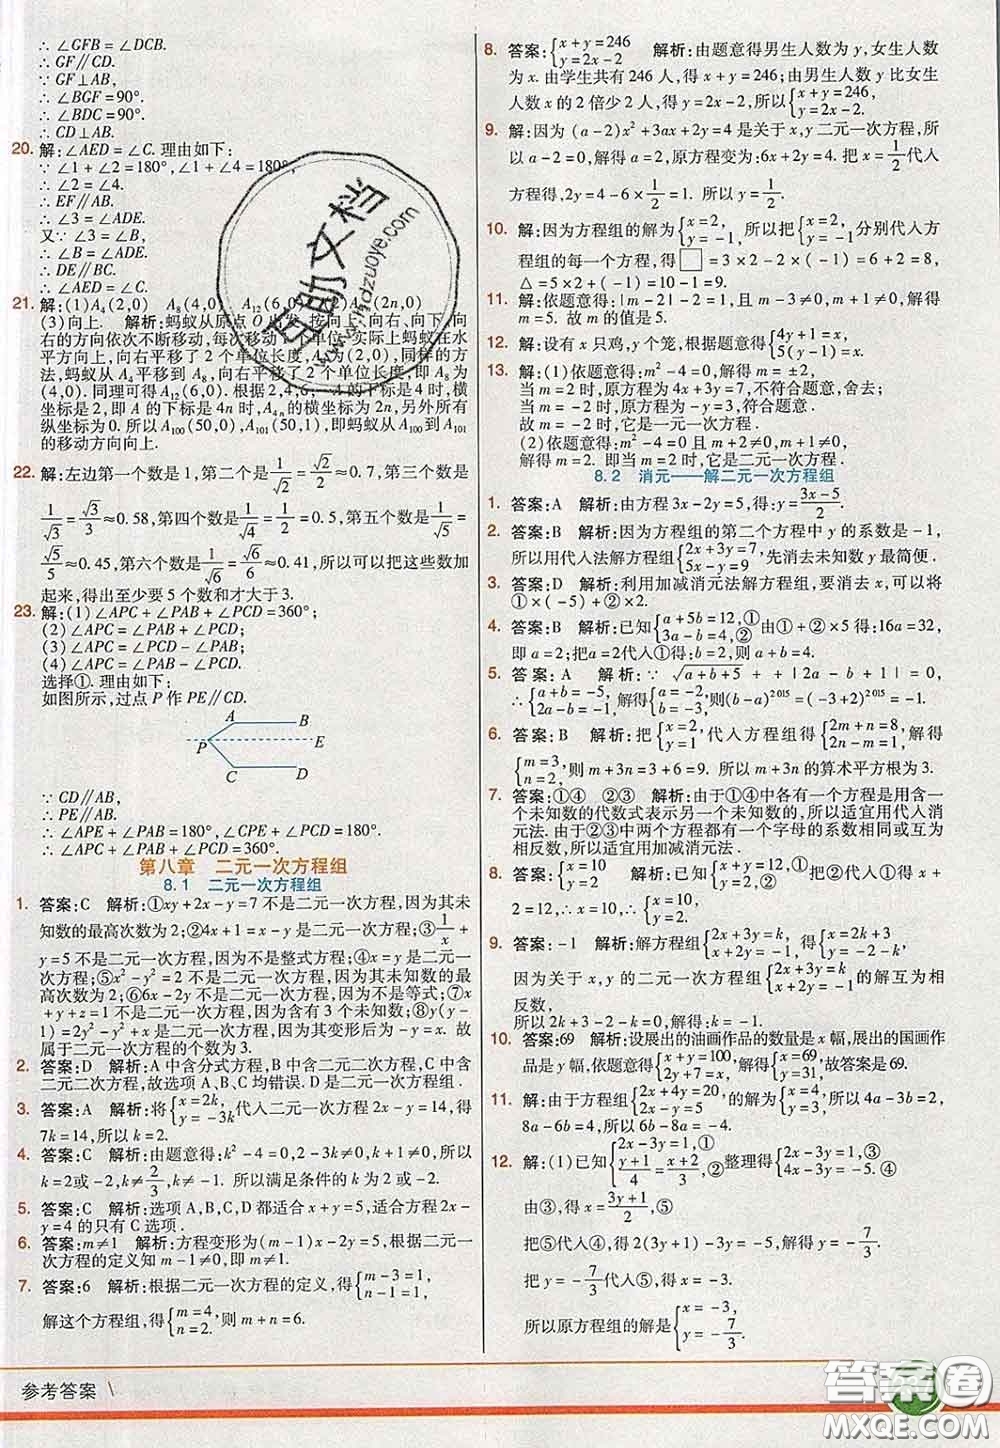 ∴ ∠GFB = ∠DCB.
∴ GF∥CD.
∵ GF⊥AB,
∴ ∠BGF = 90°.
∴ ∠BDC = 90°.
∴ CD⊥AB.
20. 解:∠AED = ∠C. 理由如下:
∵ ∠1 + ∠2 = 180°, ∠1 + ∠4 = 180°,
∴ ∠2 = ∠4.
∴ EF∥AB.
∴ ∠3 = ∠ADE.
又∵ ∠3 = ∠B,
∴ ∠B = ∠ADE.
∴ DE∥BC.
∴ ∠AED = ∠C.
21. 解:(1)A₄(2,0) A₈(4,0) A₁₂(6,0)
(2n,0)
(3)向上. 解析:蚂蚁从原点 O 出发,按向上、向
右的方向依次不断移动,每次移动
个单位,在水
平方向上,向右平移了 2 个单位长度,A₄为(2,0),同样的方
法,蚂蚁从 A₄ 移到 A₈,向右平移了 2 个单位长度,A₈为
(4,0). 同理可得 A₁₂(6,0). 根据 2,4,6,…4n 的下标是 4 时,横
坐标是 2,即 A 的下标是 4n 时,A₄ₙ的横坐标为 2n,另外所有
纵坐标为 0. 所以 A₁₀₀(50,0),A₁₀₁(50,1),即蚂蚁从 A₁₀₀到 A₁₀₁
的移动方向向上.
22. 解:左边第一个数是 1,第二个是 1/√2 = √2/2 ≈ 0.7,第三个数是
1/√3 = √3/3 ≈ 0.58,第四个数是 1/√4 = 1/2 = 0.5,第五个数是 1/√5 =
√5/5 ≈ 0.45,第六个数是 1/√6 = √6/6 ≈ 0.41,所以可以把这些数加
起来,得出至少要 5 个数和才大于 3.
23. 解:(1)∠APC + ∠PAB + ∠PCD = 360°;
(2)∠APC = ∠PAB + ∠PCD;
(3)∠APC = ∠PCD − ∠PAB;
(4)∠APC = ∠PAB − ∠PCD.
选择①. 理由如下:
如图所示,过点 P 作 PE∥CD.
A B
P E
C D
∵ CD∥AB,
∴ PE∥AB.
∴ ∠APE + ∠PAB = 180°, ∠CPE + ∠PCD = 180°.
∴ ∠APC + ∠PAB + ∠PCD = 360°.
第八章 二元一次方程组
8.1 二元一次方程组
1. 答案:C 解析:①xy + 2x − y = 7 不是二元一次方程,因为其未
知数的最高次数为 2;②4x + 1 = x − y 是二元一次方程;③1/x +
y = 5 不是二元一次方程,因为不是整式方程;④x = y 是二元一
次方程;⑤x² − y² = 2 不是二元一次方程,因为其未知数的最
高次数为 2;⑥6x − 2y 不是二元一次方程,因为不是等式;⑦x
+ y + z = 1 不是二元一次方程,因为含有 3 个未知数;⑧y(y −
1) = 2y² − y² + x 是二元一次方程,因为其变形后为 −y = x. 故
属于二元一次方程的个数为 3.
2. 答案:D 解析:A 中含分式方程,B 中含二元二次方程,C 中含
二元二次方程,故选项 A、B、C 均错误. D 是二元一次方程组.
3. 答案:A 解析:将{x = 2k, y = −3k 代入二元一次方程 2x − y = 14,得
7k = 14,所以 k = 2.
4. 答案:C 解析:由题意得:k² − 4 = 0,2 − 3k ≠ 0,k + 2 ≠ 0,
k = 2 或 −2,k ≠ 2/3,k ≠ −2. 所以满足条件的 k = 2.
5. 答案:C 解析:选项 A、B、C、D 都适合 x + y = 5,适合方程 2x −
y = 4 的只有 C 选项.
6. 答案:m≠1 解析:方程变形为 (m − 1)x − 2y = 5,根据二元一
次方程的定义知 m − 1 ≠ 0,即 m ≠ 1.
7. 答案:6 解析:根据二元一次方程的定义,得{m − 3 = 1, n − 1 = 1.
解这个方程组,得{m = 4, n = 2. 则 m + n = 6.
8. 答案:{x + y = 246 y = 2x − 2 解析:由题意得男生人数为 y,女生人数
为 x. 由学生共有 246 人,得 x + y = 246;由男生人数 y 比女生
人数 x 的 2 倍少 2 人,得 y = 2x − 2,所以{x + y = 246, y = 2x − 2.
9. 解:因为 (a − 2)x² + 3ax + 2y = 4 是关于 x,y 二元一次方程,所
以 a − 2 = 0,解得 a = 2,原方程变为:6x + 2y = 4. 把 x = 1/2 代人
方程得,2y = 4 − 6 × 1/2 = 1. 所以 y = 1/2.
10. 解:因为方程组的解为{x = 2, y = −1, 所以把{x = 2, y = −1 分别代人方
程组的每一个方程,得 □ = 3×2 − 2×(−1) = 6 + 2 = 8,
△ = 5×2 + (−1) = 10 − 1 = 9.
11. 解:依题意得:|m − 2| − 2 = 1 且 m − 3 ≠ 0,m + 1 ≠ 0,解得
m = 5. 故 m 的值是 5.
12. 解:设有 x 只鸡,y 个笼,根据题意得{4y + 1 = x, 5(y − 1) = x.
13. 解:(1)依题意得:m² − 4 = 0,解得 m = ±2,
当 m = 2 时,原方程为 4x + 3y = 7,不符合题意,舍去;
当 m = −2 时,原方程为 −y = 3,符合题意.
故 m = −2 时,它是一元一次方程.
(2)依题意得:m² − 4 = 0,且 m + 2 ≠ 0,
解得 m = 2. 即 m = 2 时,它是二元一次方程.
8.2 消元——解二元一次方程组
1. 答案:A 解析:由方程 3x − 2y = 5,得:y = (3x − 5)/2.
2. 答案:B 解析:因为方程组的第二个方程中 y 的系数是 −1,
所以用代人法解方程组{2x + 3y = 7, 5x − y = 9, 先消去未知数 y 最简便.
3. 答案:D 解析:利用加减消元法解方程组,要消去 x,可以将
①×(−5) + ②×2.
4. 答案:B 解析:已知{a + 5b = 12,① 3a − b = 4,② 由①+②×5 得:16a = 32,
即 a = 2;把 a = 2代人①得:b = 2,则 a + b = 4.
5. 答案:A 解析:∵ √(a + b + 5) + |2a − b + 1| = 0,
∴ {a + b = −5, 2a − b = −1, 解得{a = −2, b = −3, 则(b − a)²⁰¹⁵ = (−3 + 2)²⁰¹⁵ = −1.
6. 答案:B 解析:把{x = 2, y = 1, 代人方程组得{2m + n = 8, 2n − m = 1, 解得
{m = 3, n = 2, 所以 m + 3n = 3 + 6 = 9. 所以 m + 3n 的算术平方根为 3.
7. 答案:①④ ②③ 解析:由于①④中各有一个方程是用含一
个未知数的代数式表示另一个未知数的,所以适宜用代人消
元法. 由于②③中两个方程有一个字母的系数相同或互为
相反数,所以适宜用加减消元法.
8. 答案:{x = 10 y = 2 解析:已知{x + y = 12,① y = 2,② 把②代人①得 x +
2 = 12,∴ x = 10,∴ {x = 10 y = 2.
9. 答案:−1 解析:解方程组{2x + 3y = k, x + 2y = −1, 得{x = 2k + 3 y = −2 − k
因为关于 x,y 的二元一次方程组{2x + 3y = k, x + 2y = −1 的解互为相
反数,
所以 2k + 3 − 2 − k = 0,解得 k = −1.
10. 答案:69 解析:设展出的油画作品的数量是 x 幅,展出的国画作
品是 y 幅,依题意得{x + y = 100, 2y + 7 = x, 解得{x = 69, y = 31, 故答案是 69.
11. 解:由于方程组{2x + 4y = 20, 3x + 2y = 10 的解为{x = 0, y = 5, 所以 4a − 3b = 2,
8a − 4b = 6,所以 6b − 8a = −4.
12. 解:(1)已知{2x − 3y = 1,① (y + 1)/4 = (x + 2)/3,② 整理得{2x − 3y = 1,③ 4x − 3y = −5.④
由③,得 x = (3y + 1)/2,⑤
把⑤代人④得 2(3y + 1) − 3y = −5,y = −7/3.
把 y = −7/3代人⑤,得 x = −3.
所以原方程组的解是{x = −3, y = −7/3.
参考答案
互助文档
www.hdzuoye.com
答案圈
MXQE.COM